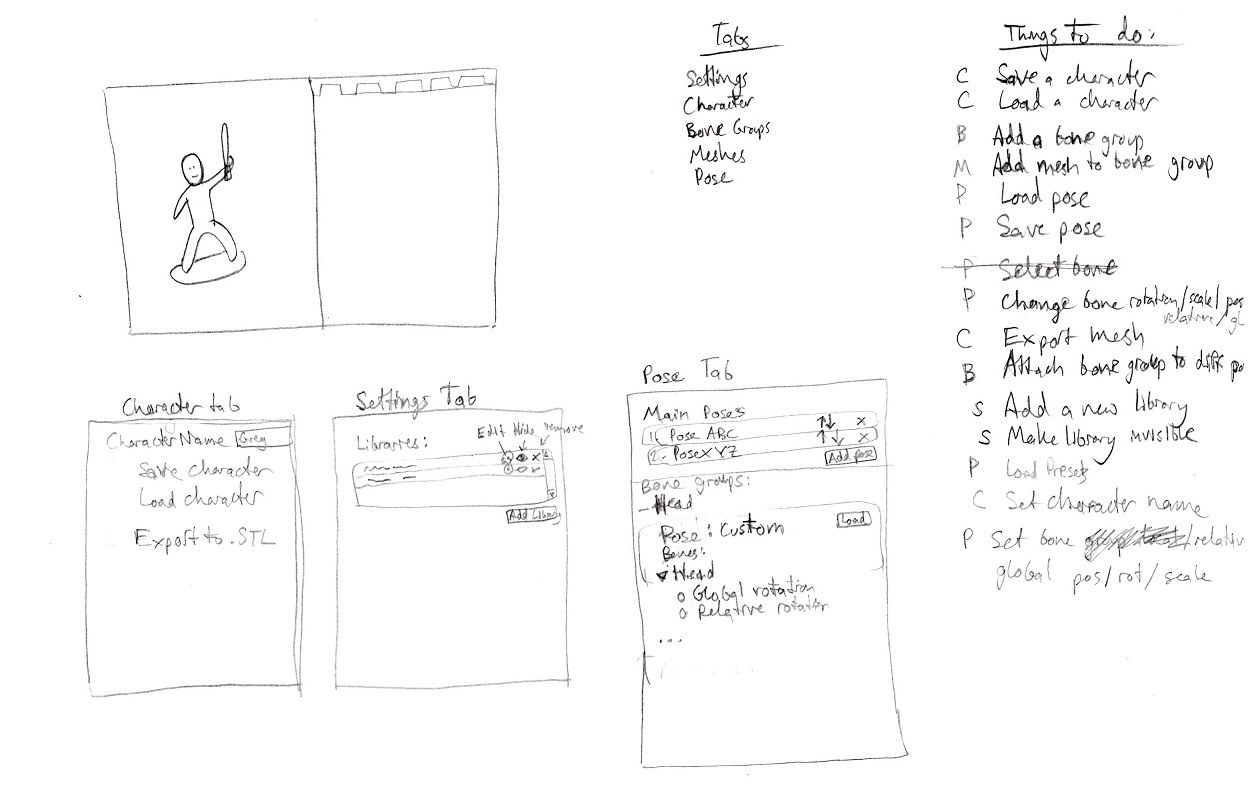 Tabs
Settings
Character
Bone Groups
Meshes
Pose
Things to do:
C Save a character
C Load a character
B Add a bone group
M Add mesh to bone group
P Load pose
P Save pose
P Select bone
P Change bone rotation/scale/pos
relative/gl
C Export mesh
B Attach bone group to diff po
S Add a new library
S Make library invisible
P Load Presets
C Set character name
P Set bone /relativ
global pos/rot/scale
Character tab
Character Name Greg
Save character
Load character
Export to .STL
Settings Tab
Edit Hide remove
Libraries:
Add Library
Pose Tab
Main Poses
1. Pose ABC ↑↓ x
2. Pose XYZ ↑↓ x
Add pose
Bone groups:
- Head
Pose: Custom Load
Bones:
▼ Head
o Global rotation
o Relative rotation
...